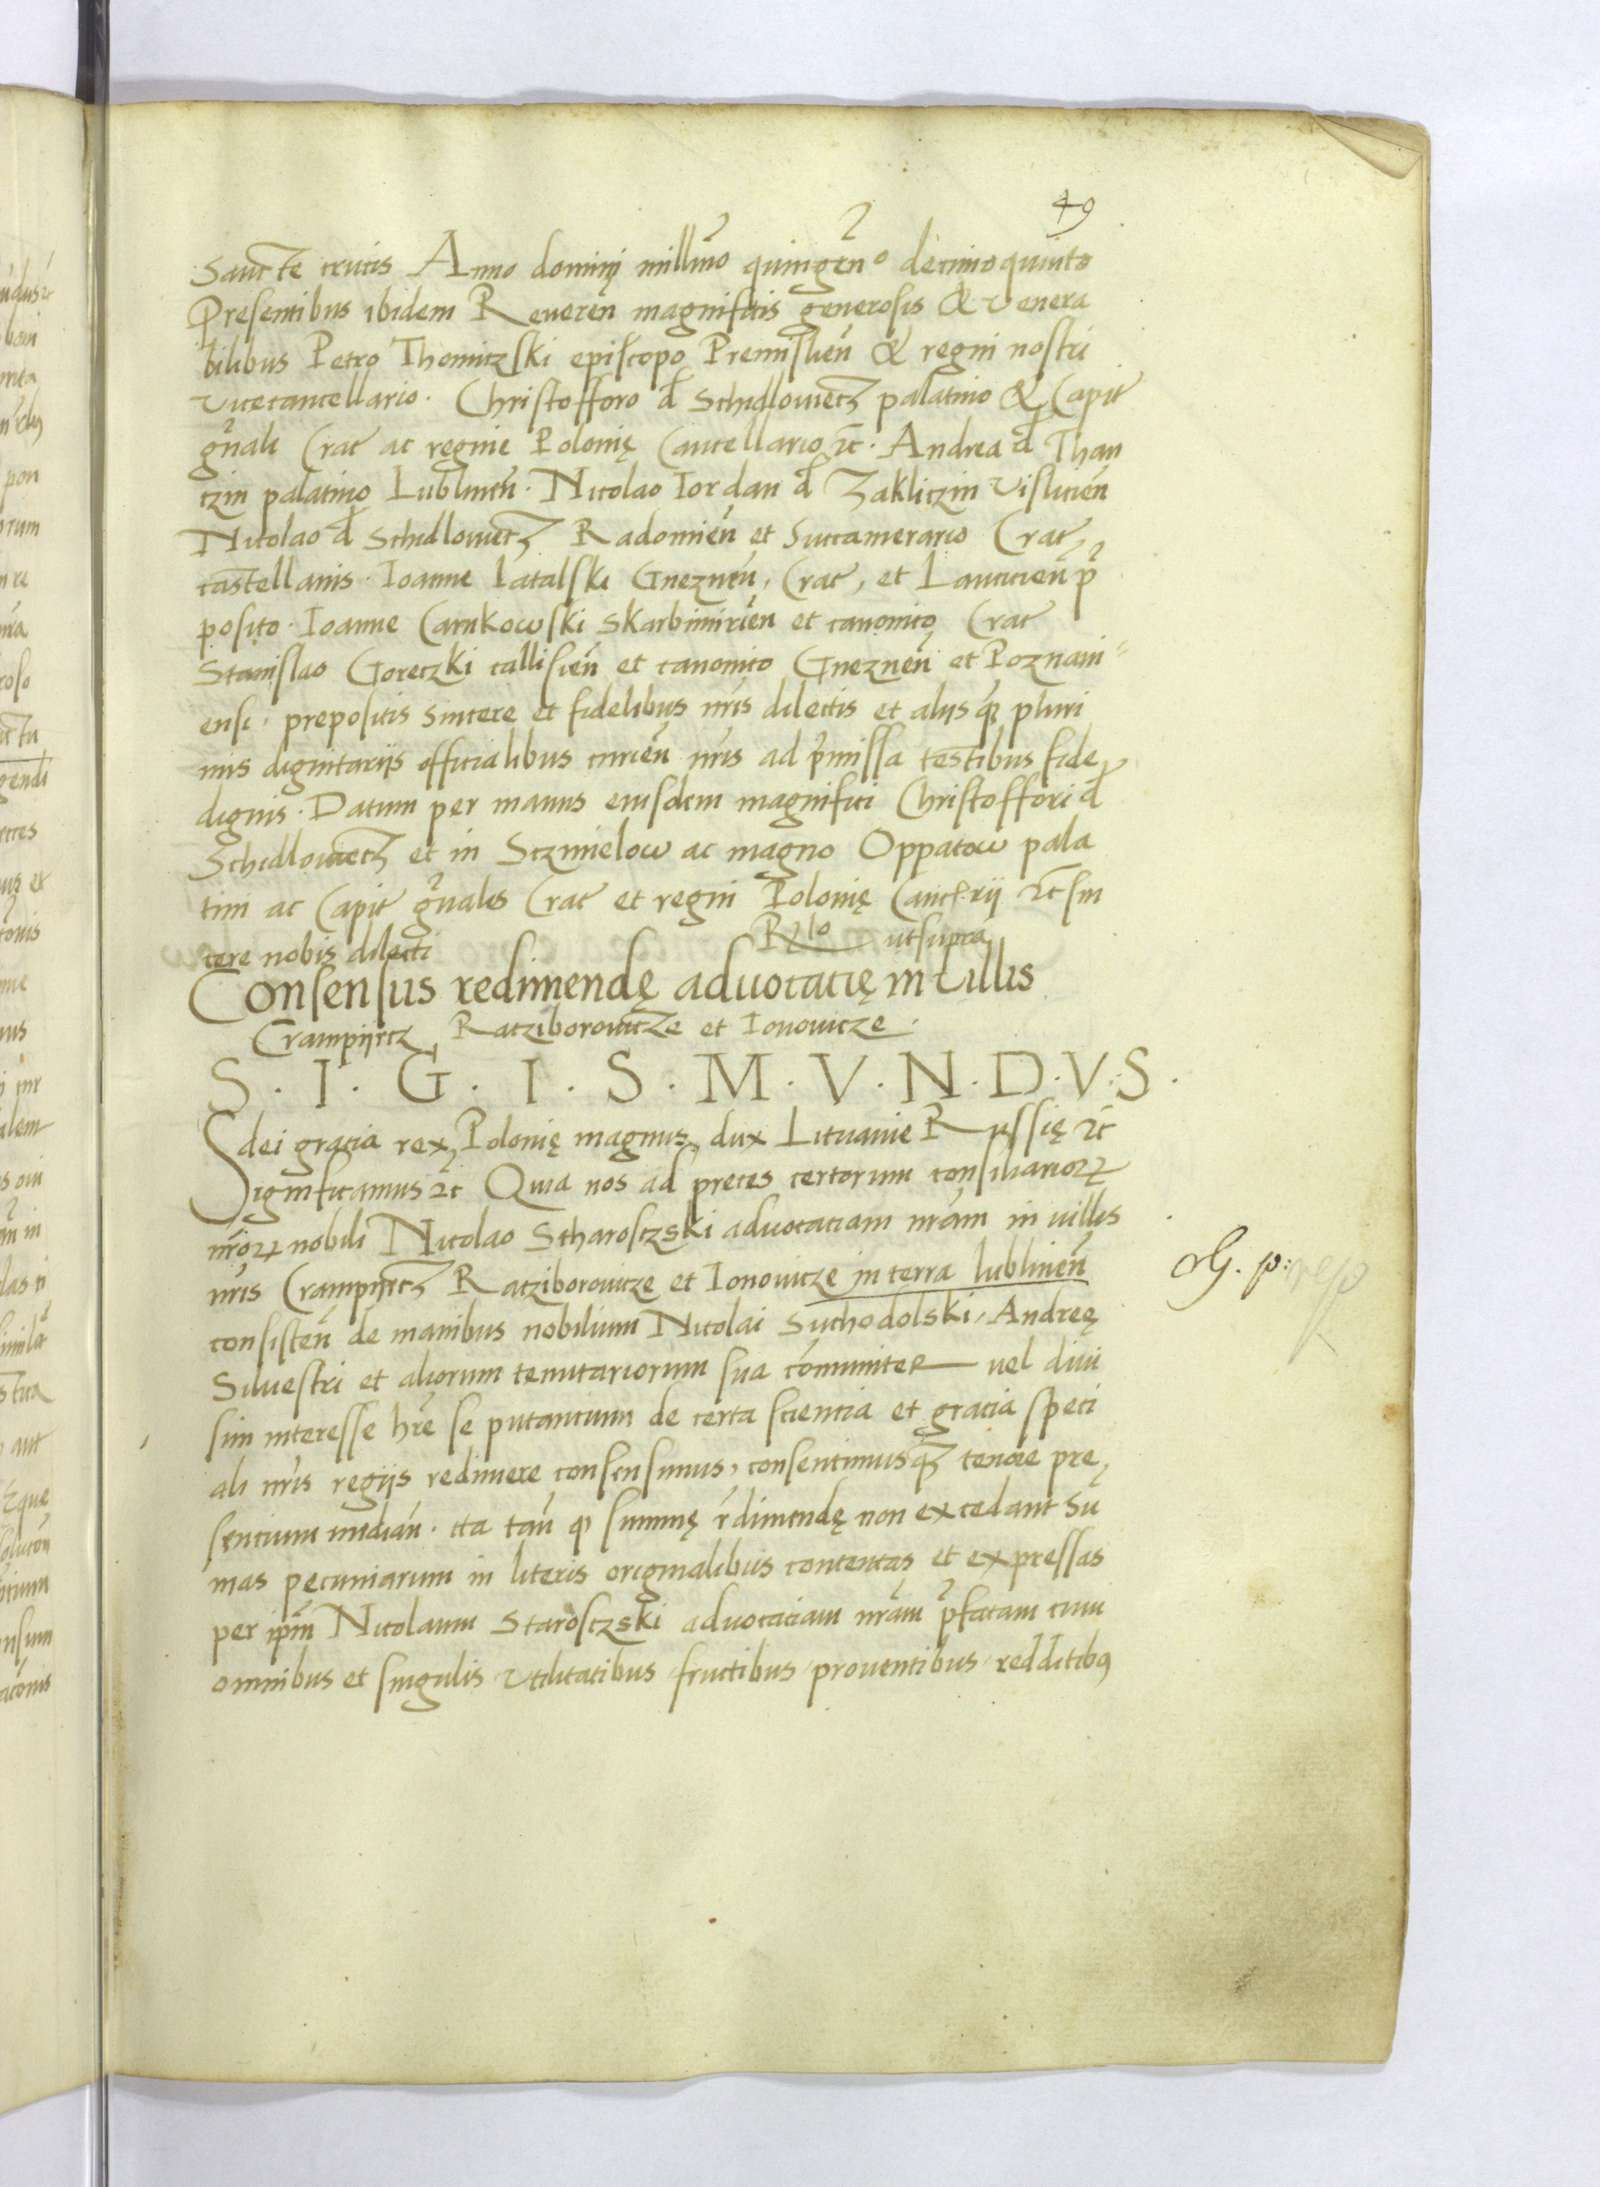 49
Sancte crucis Anno domini millimo quingeno decimoquinto
Presentibus ibidem Reveren magnificis generosis & Venera
bilibus Petro Thomiczski episcopo Premislien & regni nostri
vicecancellario. Christofforo d Schidloviecz palatino & Capit
gnali Crac ac regnie Polonię Cancellario zc. Andrea d Than
czin palatino Lublinen. Nicolao Iordan d Zakliczin vislicien
Nicolao d Schidloviecz Radomien et Succamerario Crac,
castellanis. Ioanne Latalski Gneznen, Crac, et Lancicien p
posito. Ioanne Carnkowski Skarbimirien et canonico Crac
Stanislao Goreczki callisien et canonico Gneznen et Poznani=
ensi, prepositis sincere et fidelibus nris dilectis et alijsq pluri
mis dignitarijs officialibus curien nris ad pmissa testibus fide
dignis. Datum per manus eiusdem magnifici Christoffori d
Schidloviecz et in Sczmielow ac magno Oppatow pala
tini ac Capit gnales Crac et regni Polonię Cancrii zc sin
cere nobis dilecti Rlo utsupra
Consensus redimendę advocacię in villis
Crampijecz Racziborovicze et Ionovicze.
S. I. G. I. S. M. V. N. D. V. S.
dei gracia rex Polonię magnus dux Lituanie Russię zc
Significamus zc Quia nos ad preces certorum consiliarioꝝ
nrioꝝ nobili Nicolao Scharosczski advocaciam nram in villis
nris Crampijecz Racziborovicze et Ionovicze in terra lublinen
consisten de manibus nobilium Nicolai Suchodolski, Andreę
Silvestri et aliorum tenutariorum sua comuniter vel divi
sim interesse hre se putancium de certa sciencia et gracia speci
ali nris regijs redimere consensimus, consentimusq tenore pre,
sencium mdian. ita tan q summę rdimendę non excedant su
mas pecuniarum in literis originalibus contentas et expressas
per ipm Nicolaum Starosczski advocaciam nram pfatam cum
omnibus et singulis utilitatibus fructibus proventibus redditibꝰ